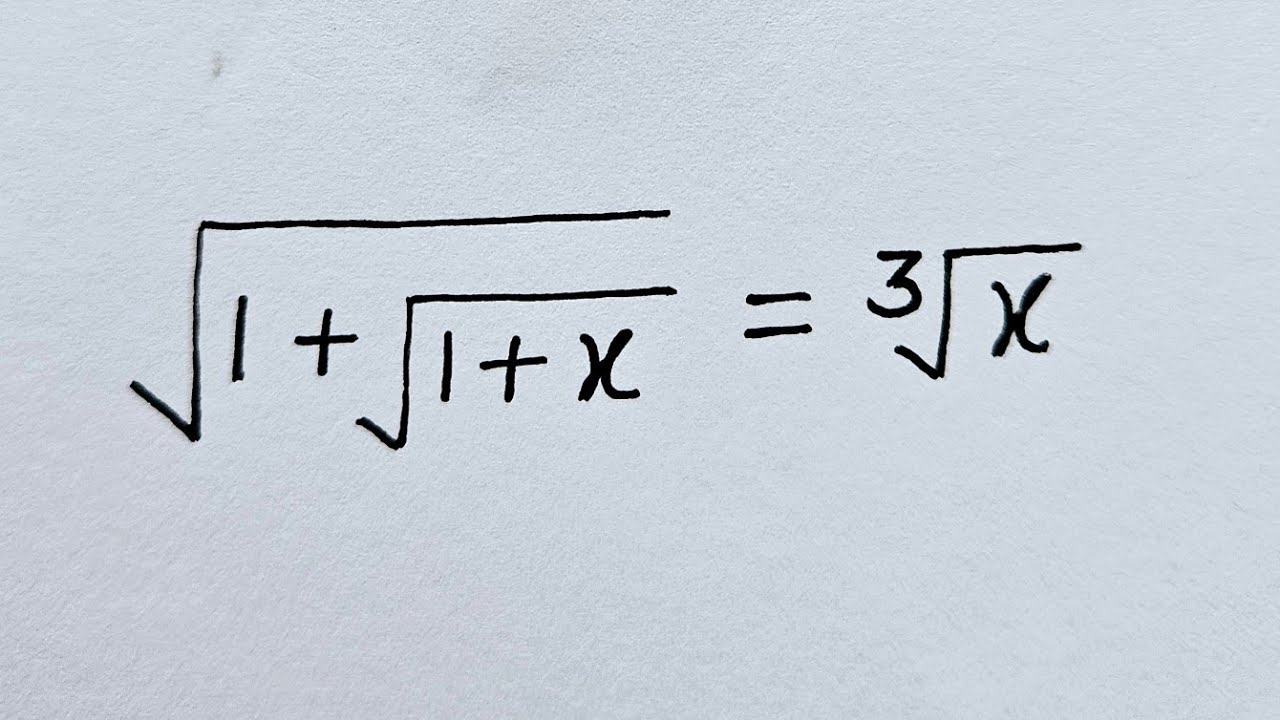 √(1+√(1+x)) = ∛x